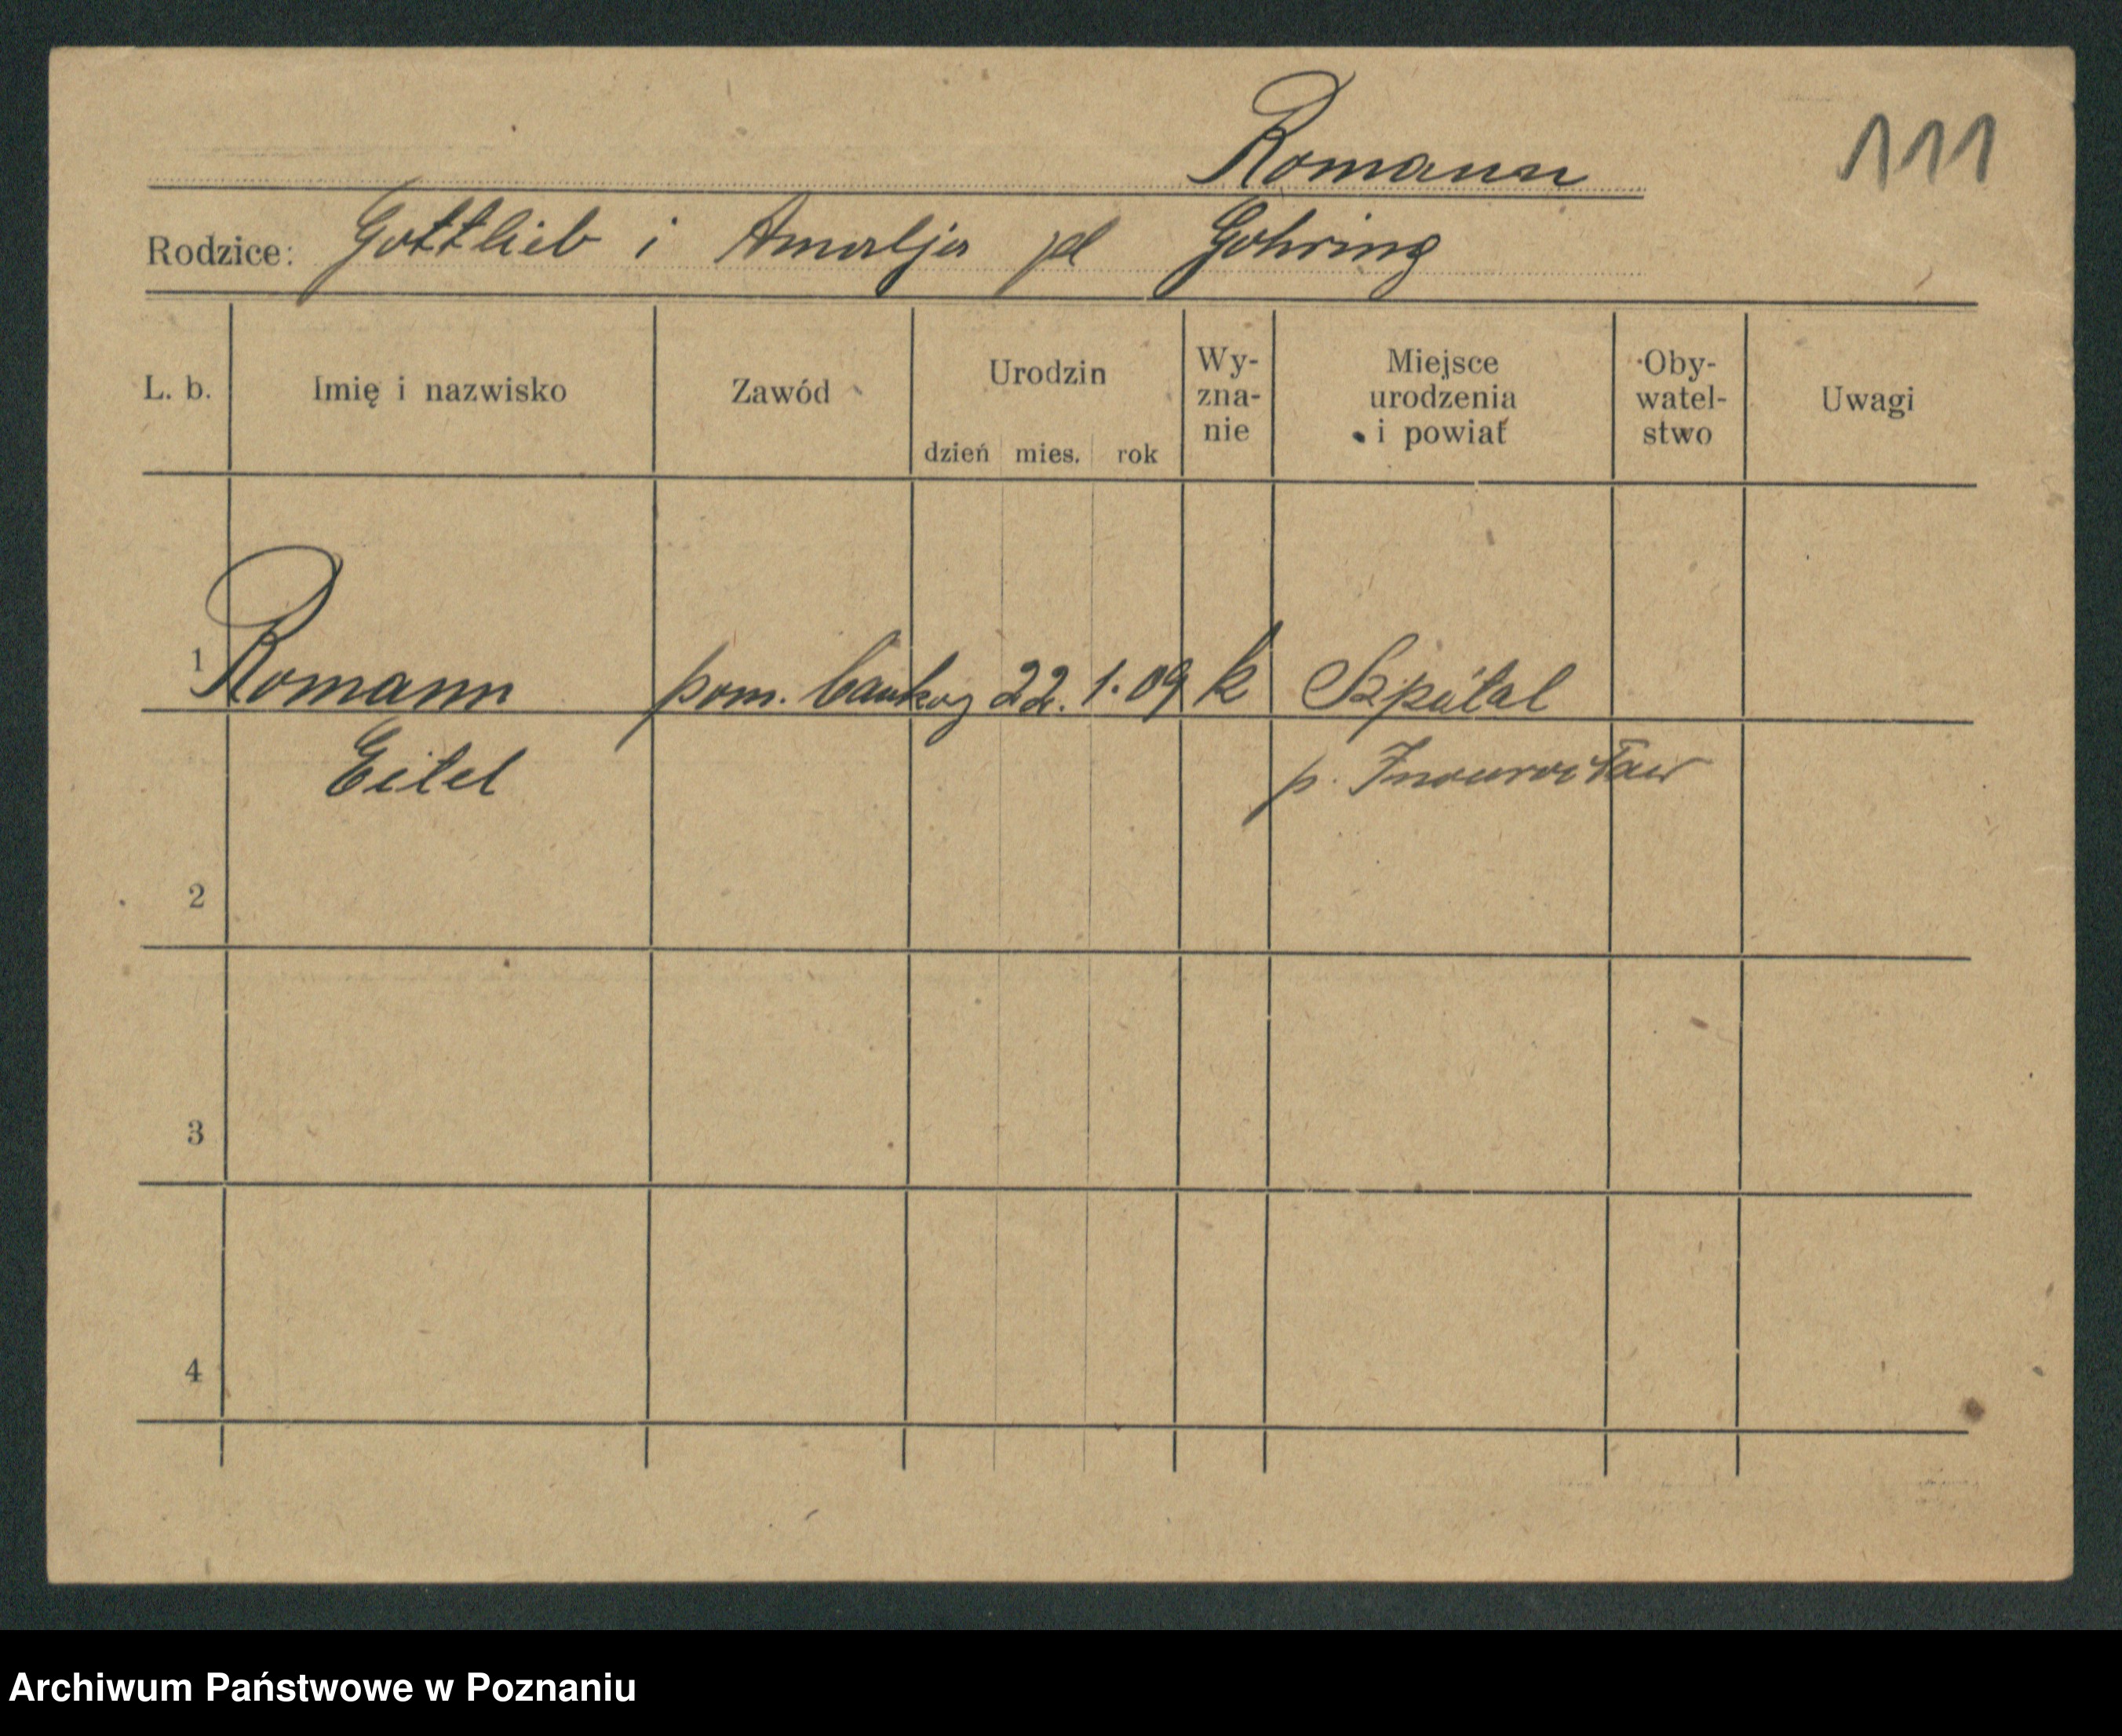 Romann
111
Rodzice: Gottlieb i Amalja Gohring
L. b. Imię i nazwisko Zawód Urodzin dzień mies. rok Wy-zna-nie Miejsce urodzenia i powiat Oby-watel-stwo Uwagi
1 Romann pom. 22. 1. 09 k Szpital
Eitel p. Inowrocław
2
3
4
Archiwum Państwowe w Poznaniu